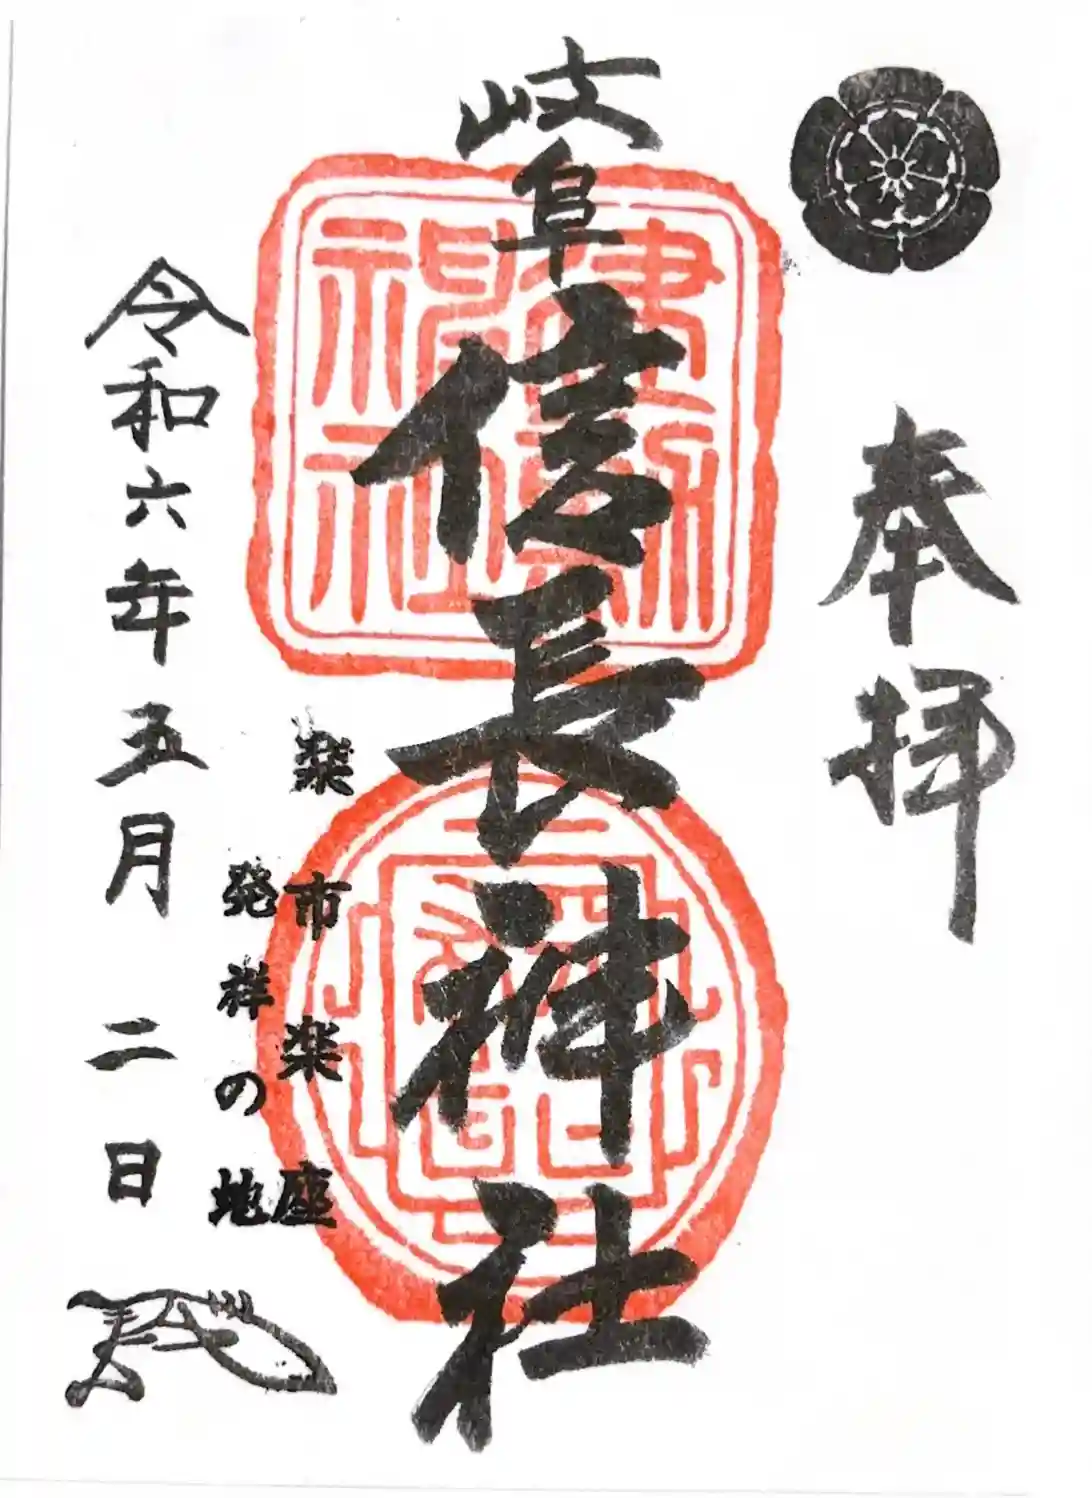 奉拝
岐阜信長神社
建勲神社
楽市楽座
発祥の地
令和六年五月二日